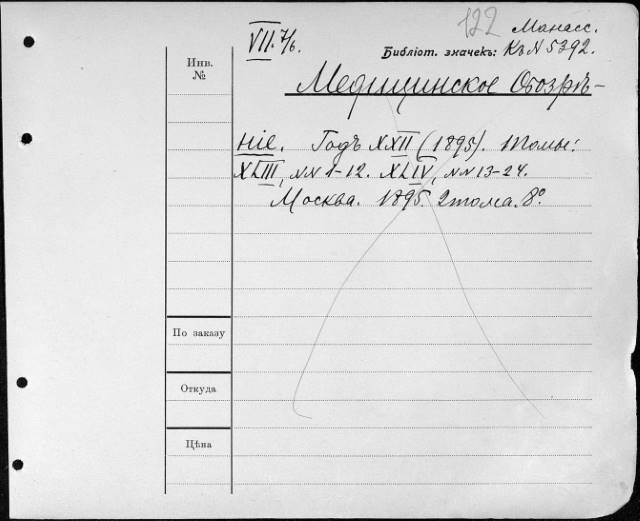 122 Манасс.
VII. 7/6. Библіот. значекъ: Къ N 5392.
Инв.
№
Медицинское Обозрѣ-
ніе. Годъ XXII (1895). Томы:
XLIII, NN 1-12. XLIV, NN 13-24.
Москва. 1895. 2 тома. 8º.
По заказу
Откуда
Цѣна